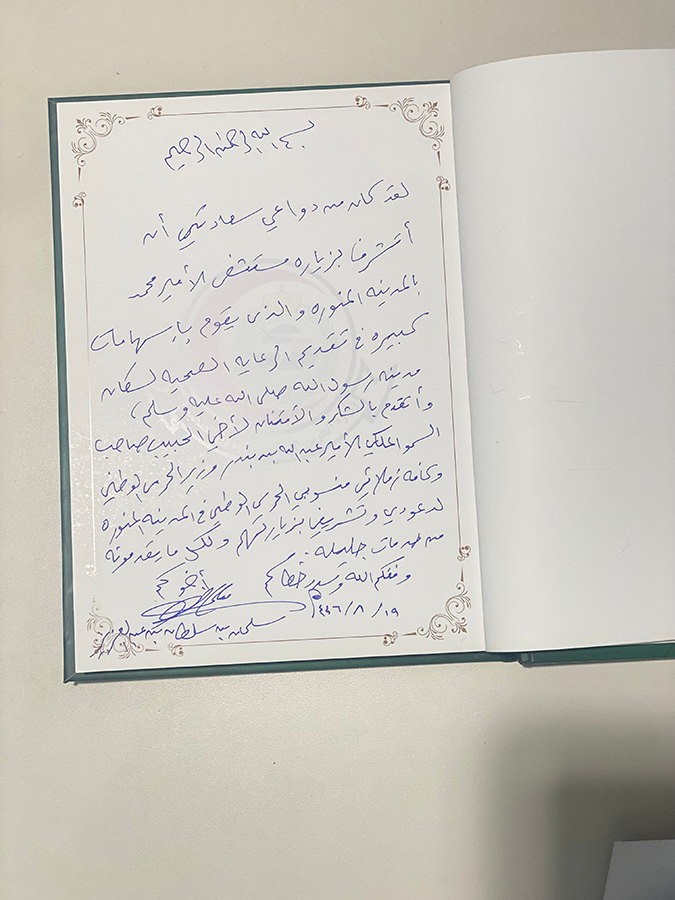 بسم الله الرحمن الرحيم
لقد كان من دواعي سعادتي أن
أتشرف بزياره مستشفى الأمير محمد
بالمدينه المنوره والذي يقوم بإسهامات
كبيره في تقديم الرعايه الصحيه لسكان
مدينه رسول الله صلى الله عليه وسلم)
وأتقدم بالشكر والأمتنان لأخي الحبيب صاحب
السمو الملكي الأمير عبدالله بن بندر وزير الحرس الوطني
وكافة زملائي منسوبي الحرس الوطني في المدينه المنوره
لدعوتي وتشريفي بزيارتهم ولكل ما يقدمونه
من خدمات جليله.
وفقكم الله وسدد خطاكم أخوكم
١٤٤٦/٨/١٩
بن سلطان بن عبدالعزيز